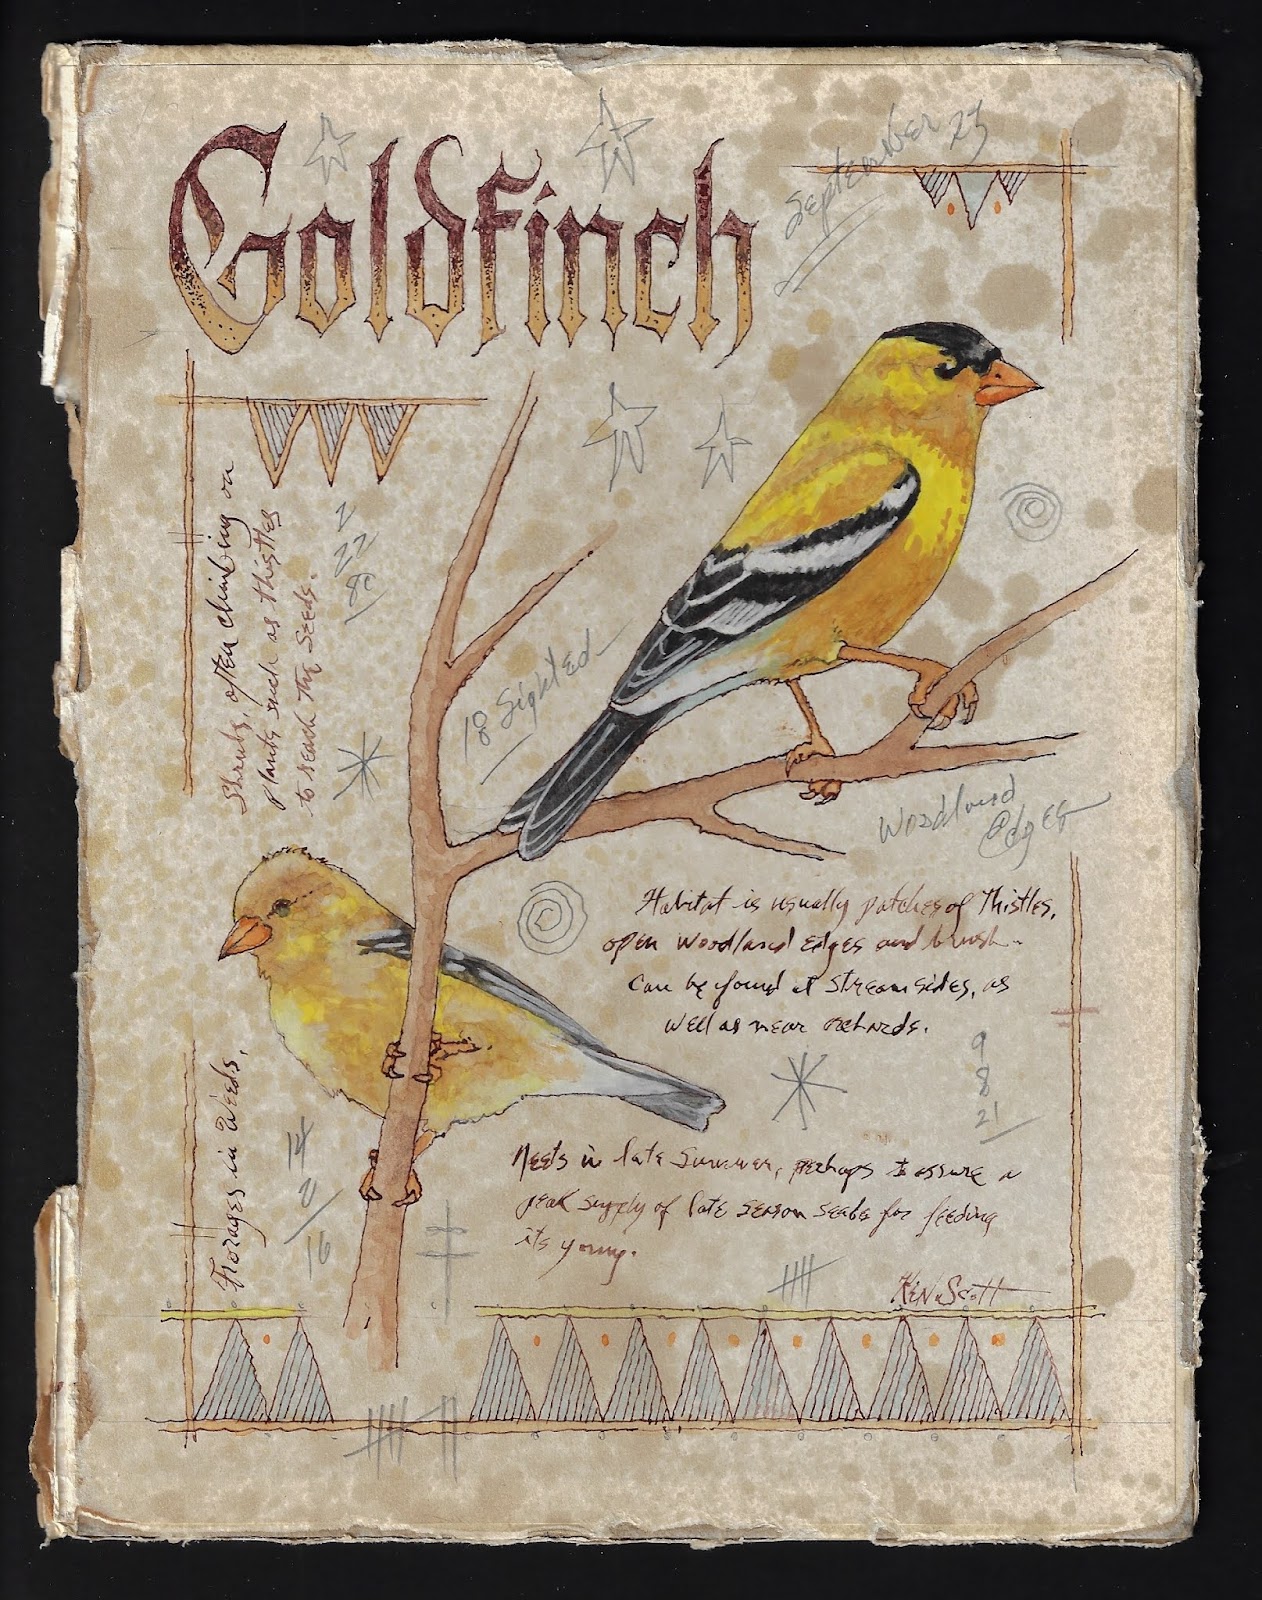 Goldfinch
September 23
Shrubs, often climbing on
plants such as thistles
to reach the seeds.
2
22
18 Sighted
Woodland
Edges
Habitat is usually patches of Thistles,
open woodland edges and brush.
Can be found at streamsides, as
well as near orchards.
9
8
21
Forages in Weeds,
14
2
16
Nests in late Summer, perhaps to assure a
peak supply of late season seeds for feeding
its young.
Ken Scott